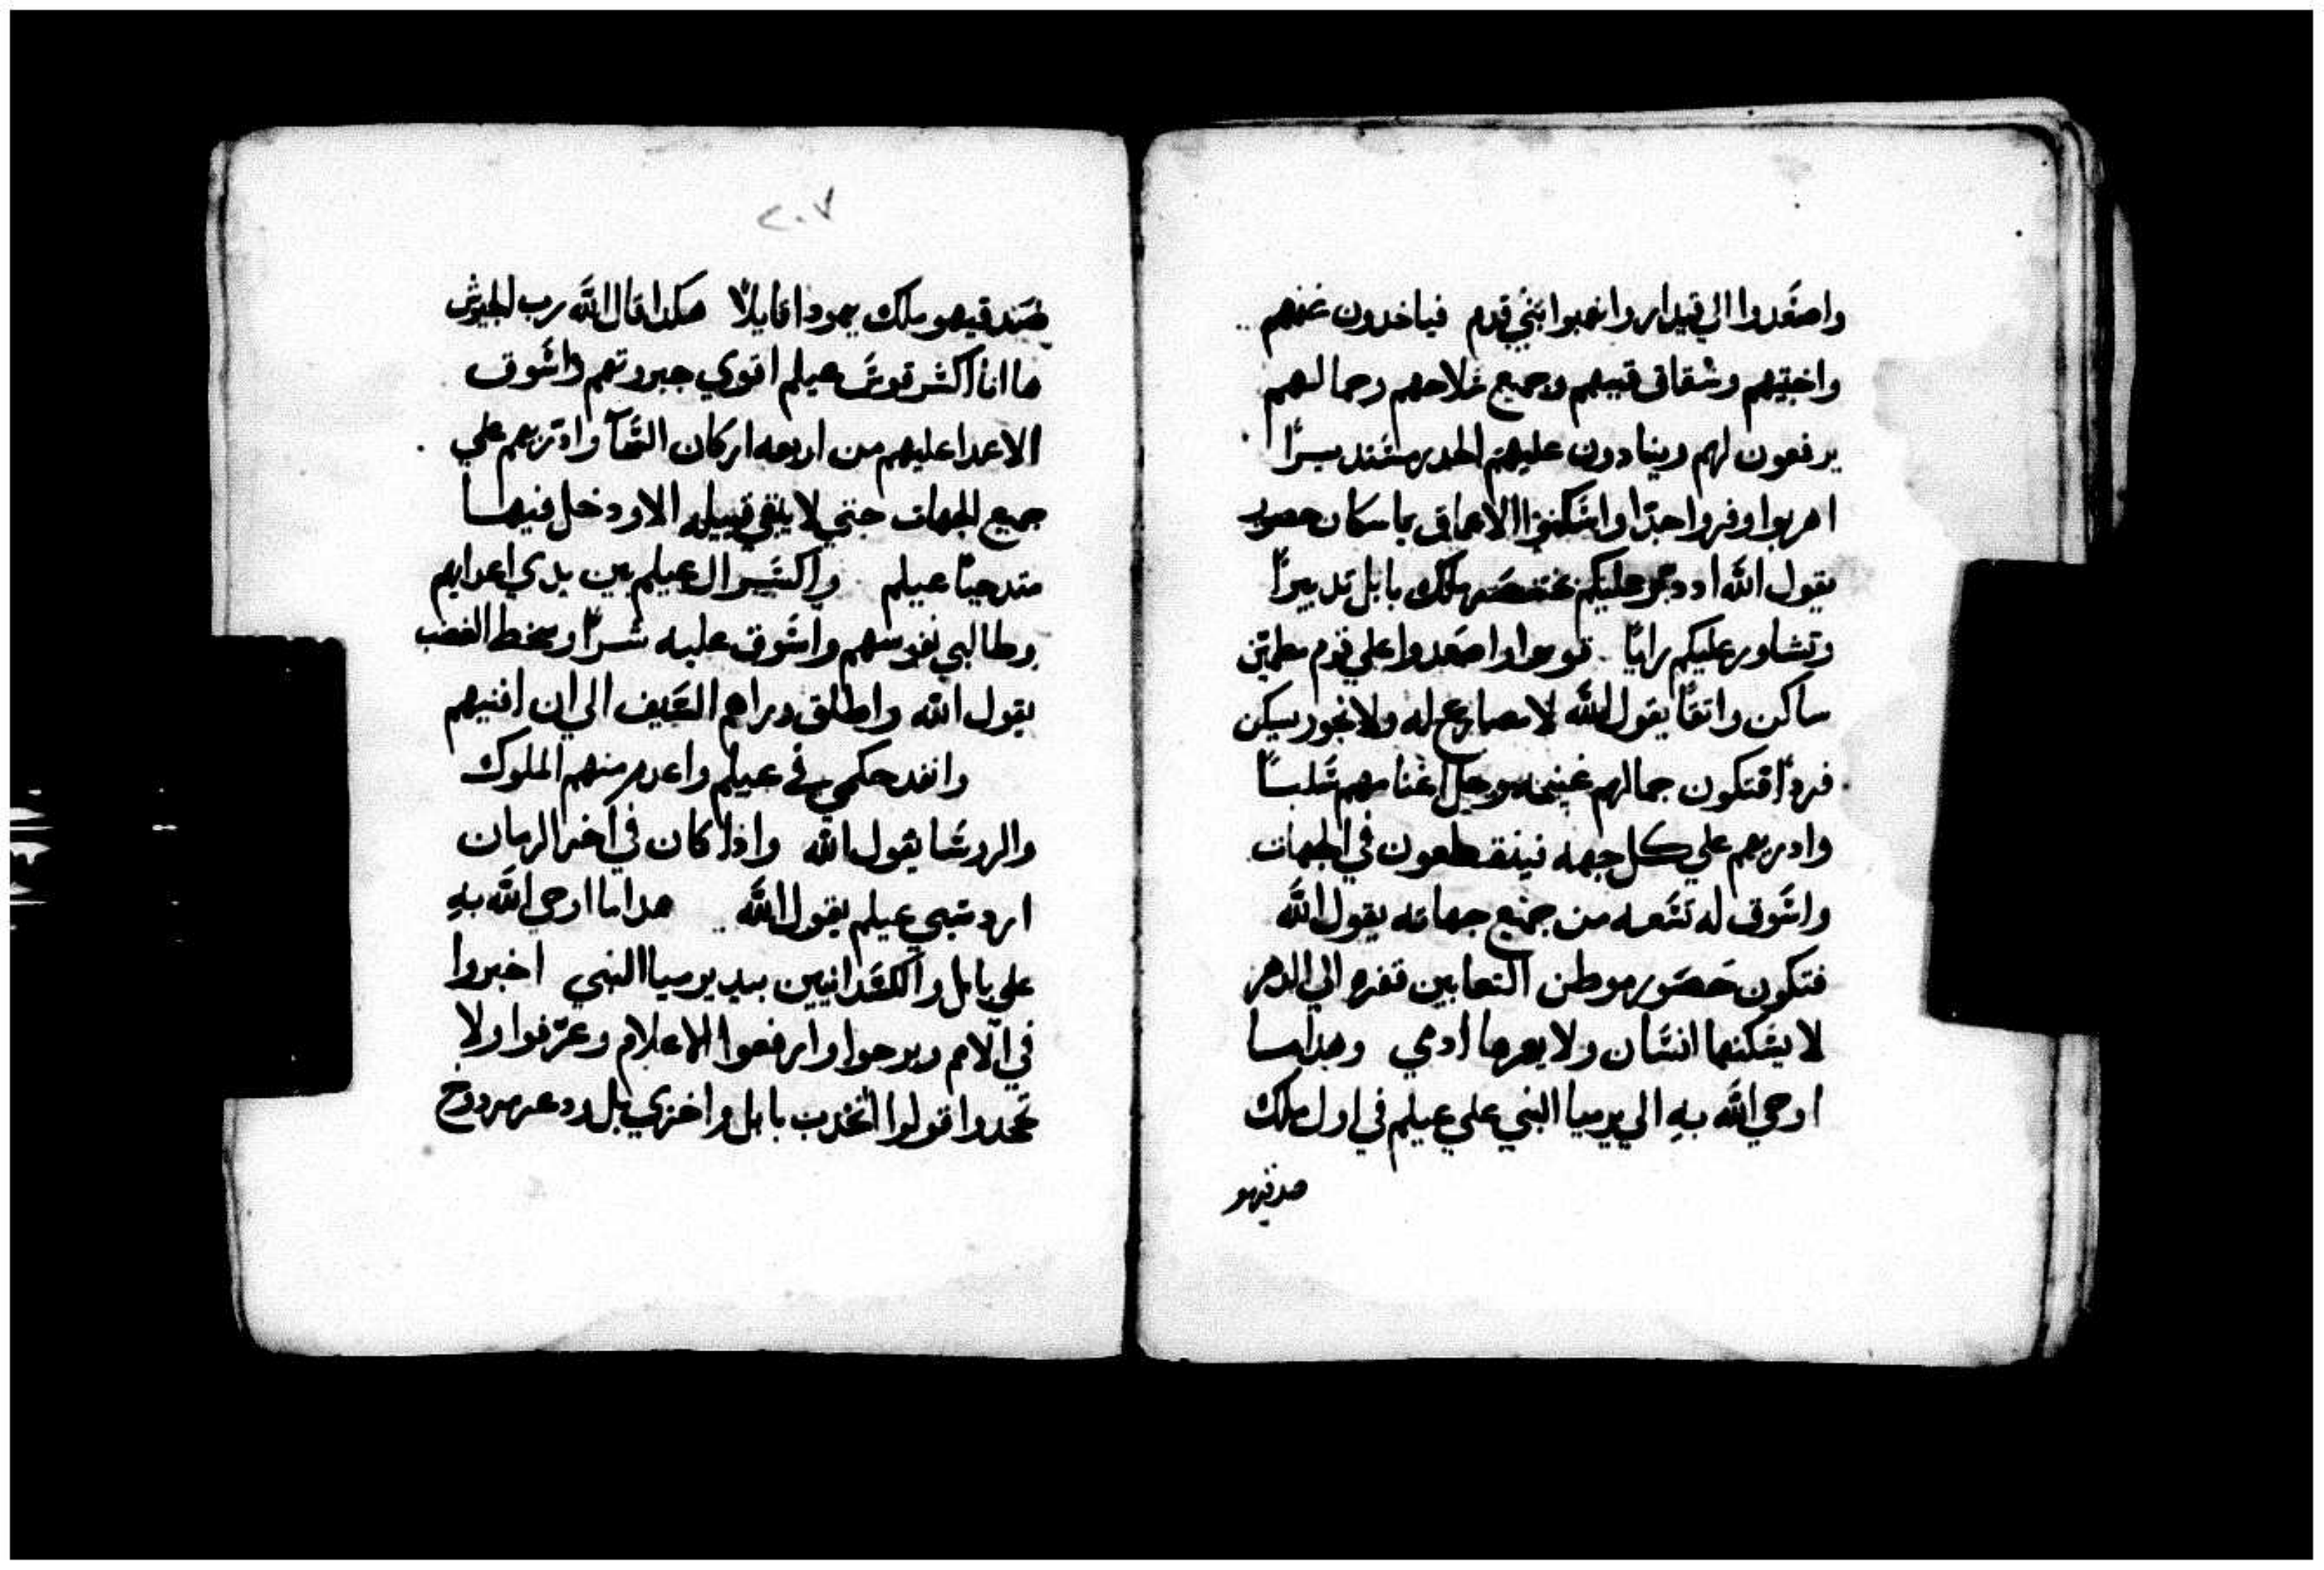 واصعدوا الي قيدار وانهبوا بني قدم فياخدون غنمهم
واخبيتهم وشقاق قبيهم وجميع سلاحهم وجمالهم
يرفعون لهم وينادون عليهم الحدر مستديرًا
اهربوا وفروا جدًا واسكنوا الاعماق يا سكان حصور
يقول الله اد دبر عليكم بختنصر ملك بابل تدبيرًا
وتشاور عليكم رايًا قوموا واصعدوا علي قوم مطمين
ساكن واتقًا يقول الله لا مصاريع له ولا نجور يسكن
فردًا فتكون جمالهم غنيمه وجل اغنامهم سلبًا
وادريهم علي كل جهه فينقطعون في الجهات
واسوق له تتعه من جميع جهاته يقول الله
فتكون حصور موطن التعابين قفره الي الدهر
لا يسكنها انسان ولا يعبرها ادمي وهدا ما
اوحي الله به الي يرميا النبي علي عيلم في اول ملك
صدقيهو
٢٠٧
صدقيهو ملك يهودا قايلًا هكدا قال الله رب الجيوش
ها انا اكسر قوس عيلم اقوي جبروتهم واسوق
الاعدا عليهم من اربعه اركان السما وادريهم علي
جميع الجهات حتي لا يبقي قبيله الا ودخل فيها
متدحيًا عيلم واكسر ال عيلم بين يدي اعدايهم
وطالبي نفوسهم واسوق عليه شرًا وسخط الغضب
يقول الله واطلق وراهم السيف الي ان افنيهم
وانفد حكمي في عيلم واعدم منهم الملوك
والروسا يقول الله وادا كان في اخر الزمان
ارد سبي عيلم يقول الله هدا ما اوحي الله به
علي بابل والكسدانيين بيد يرميا النبي اخبروا
في الامم وبرحوا وارفعوا الاعلام وعرفوا ولا
تجحدوا قولوا اتخدت بابل واخزي بل ودعر مردوح